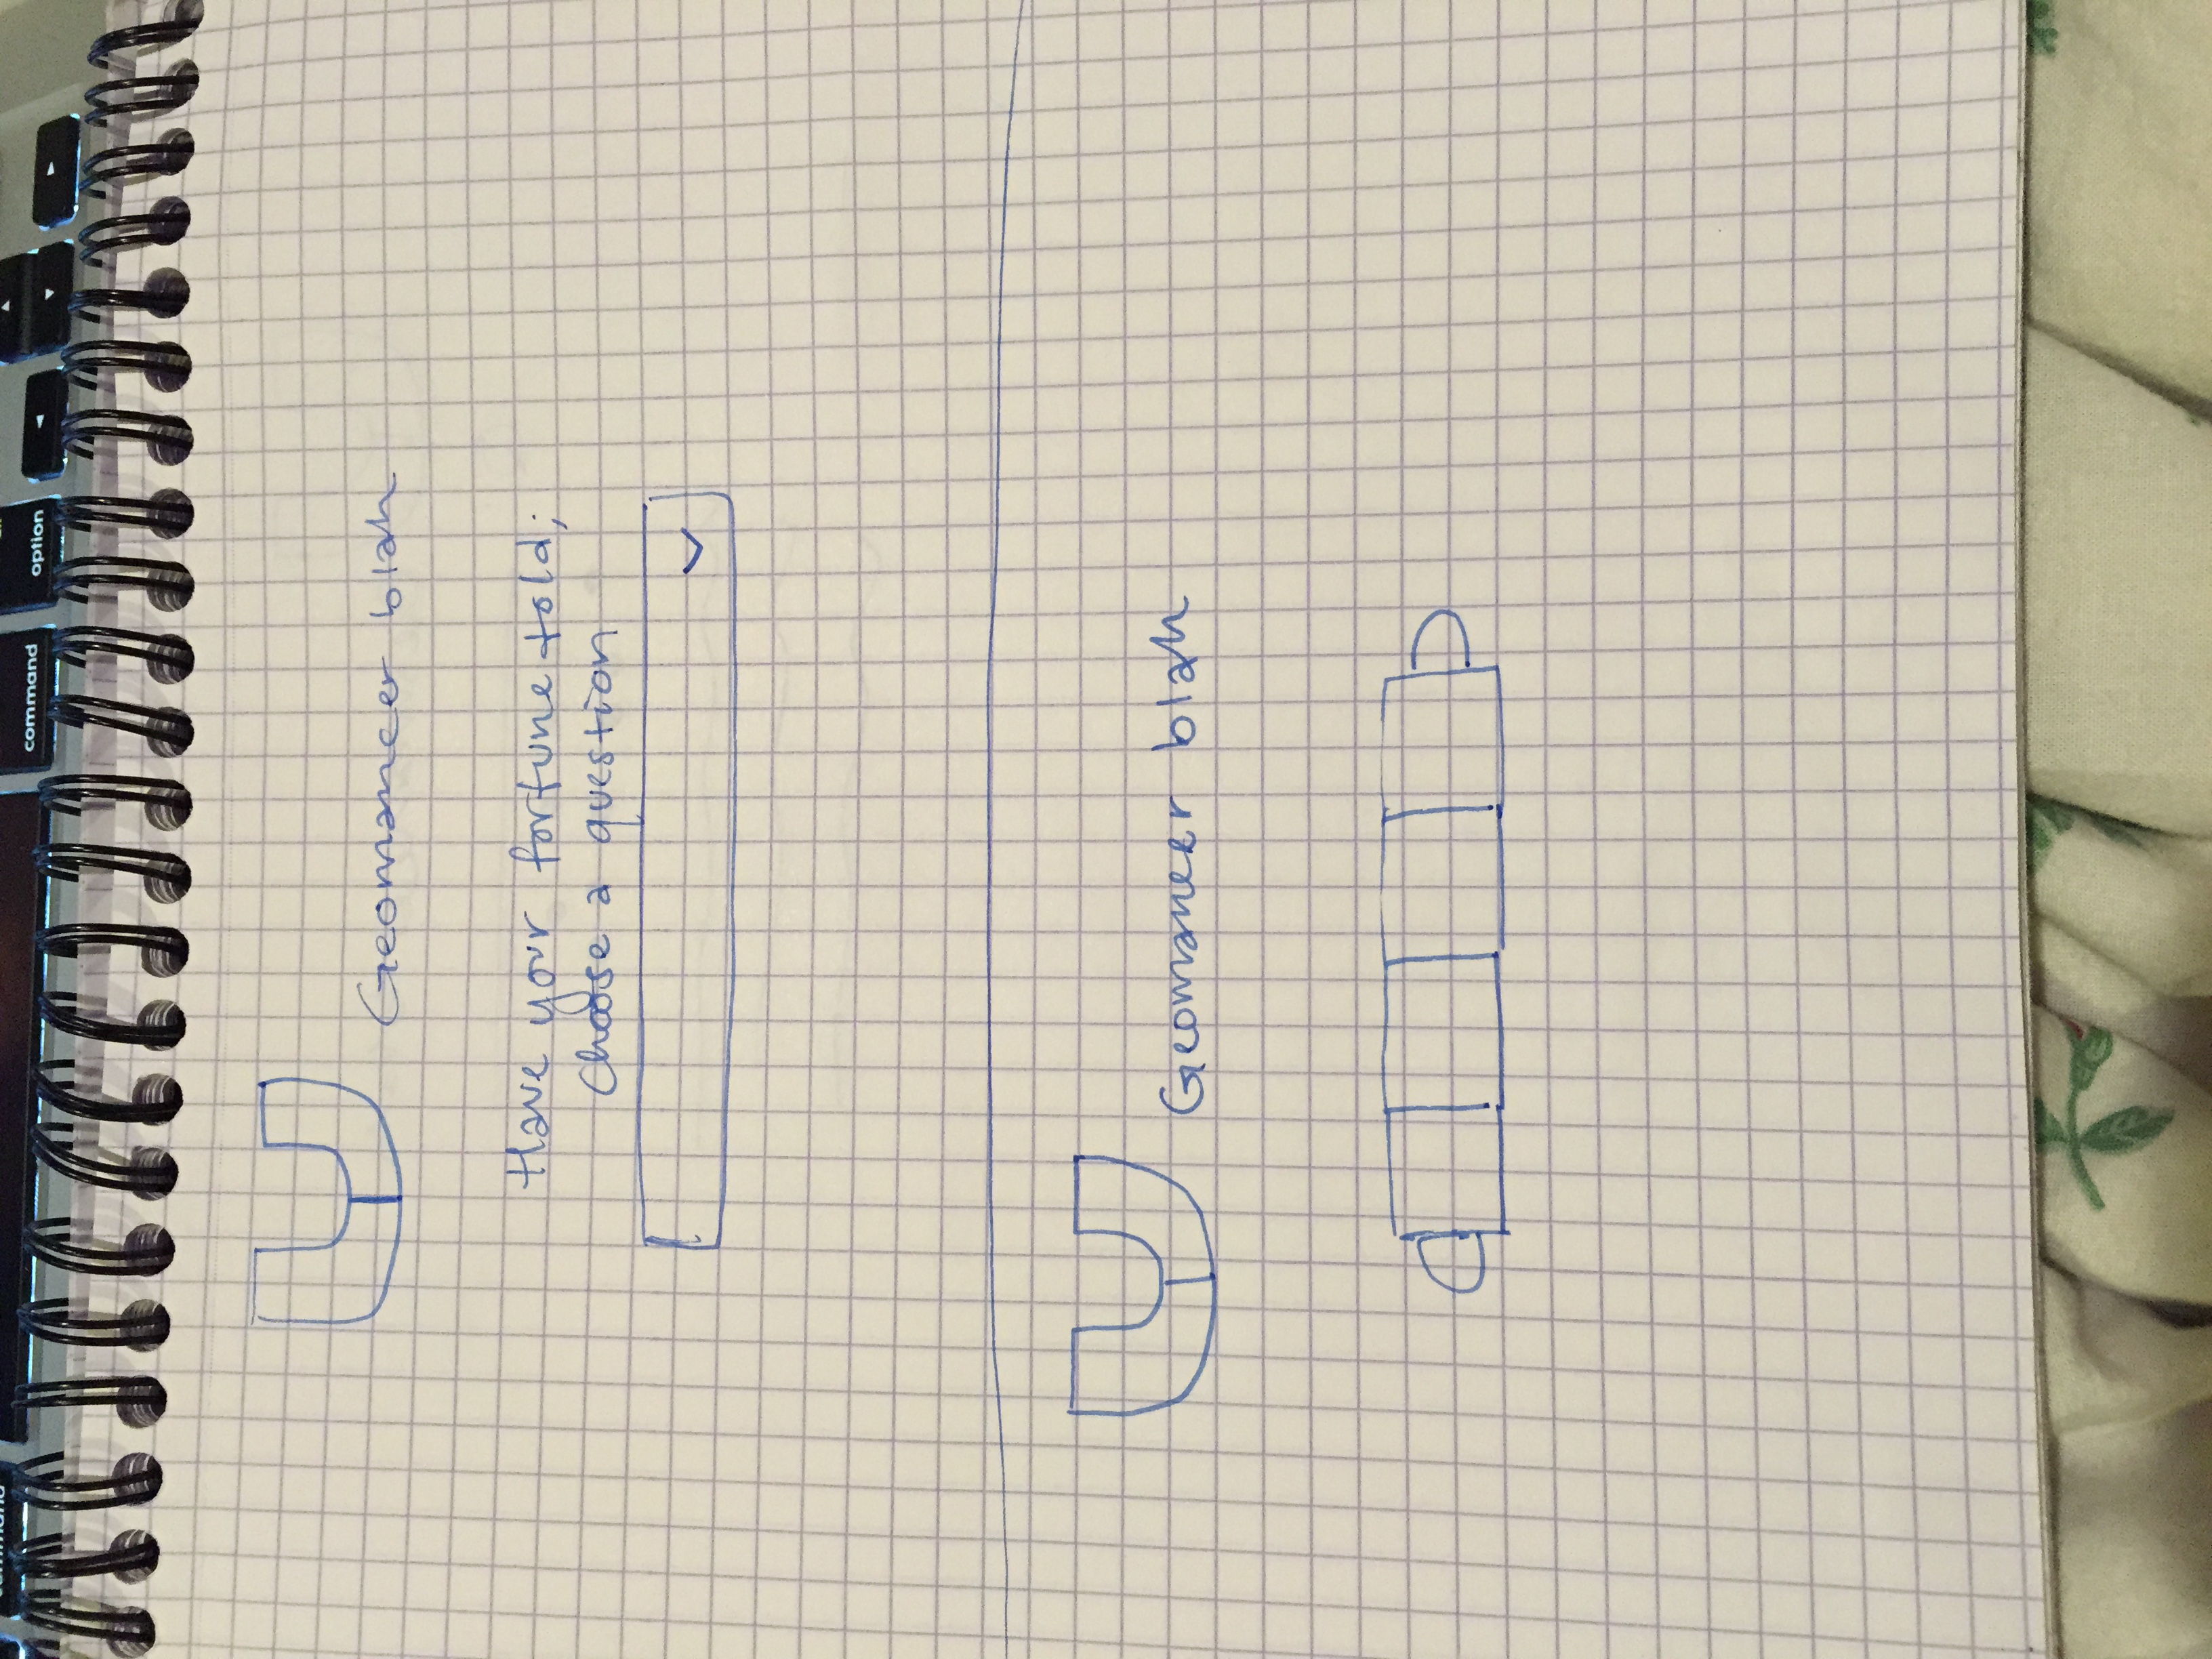 command
command
option
Geomancer blah
Have your fortune told;
Choose a question
Geomancer blah